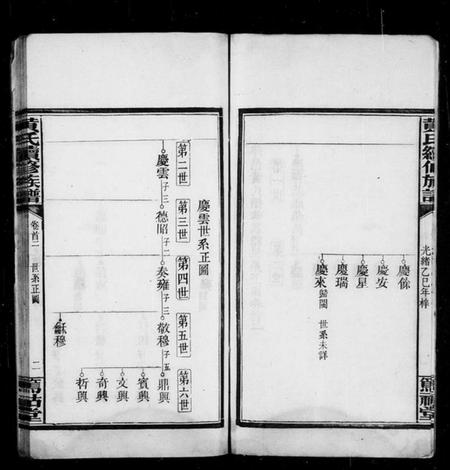 黃氏續修族譜
光緒乙巳年梓
慶餘
慶安
慶星
慶瑞
慶來 歸閩 世系未詳
慶雲世系正圖
第二世
第三世
第四世
第五世
第六世
慶雲 子三
德昭 子三
泰雍 子三
敬穆 子五
鼎興
賓興
文興
奇興
哲興
龢穆
黃氏續修族譜
卷首二
世系正圖
二